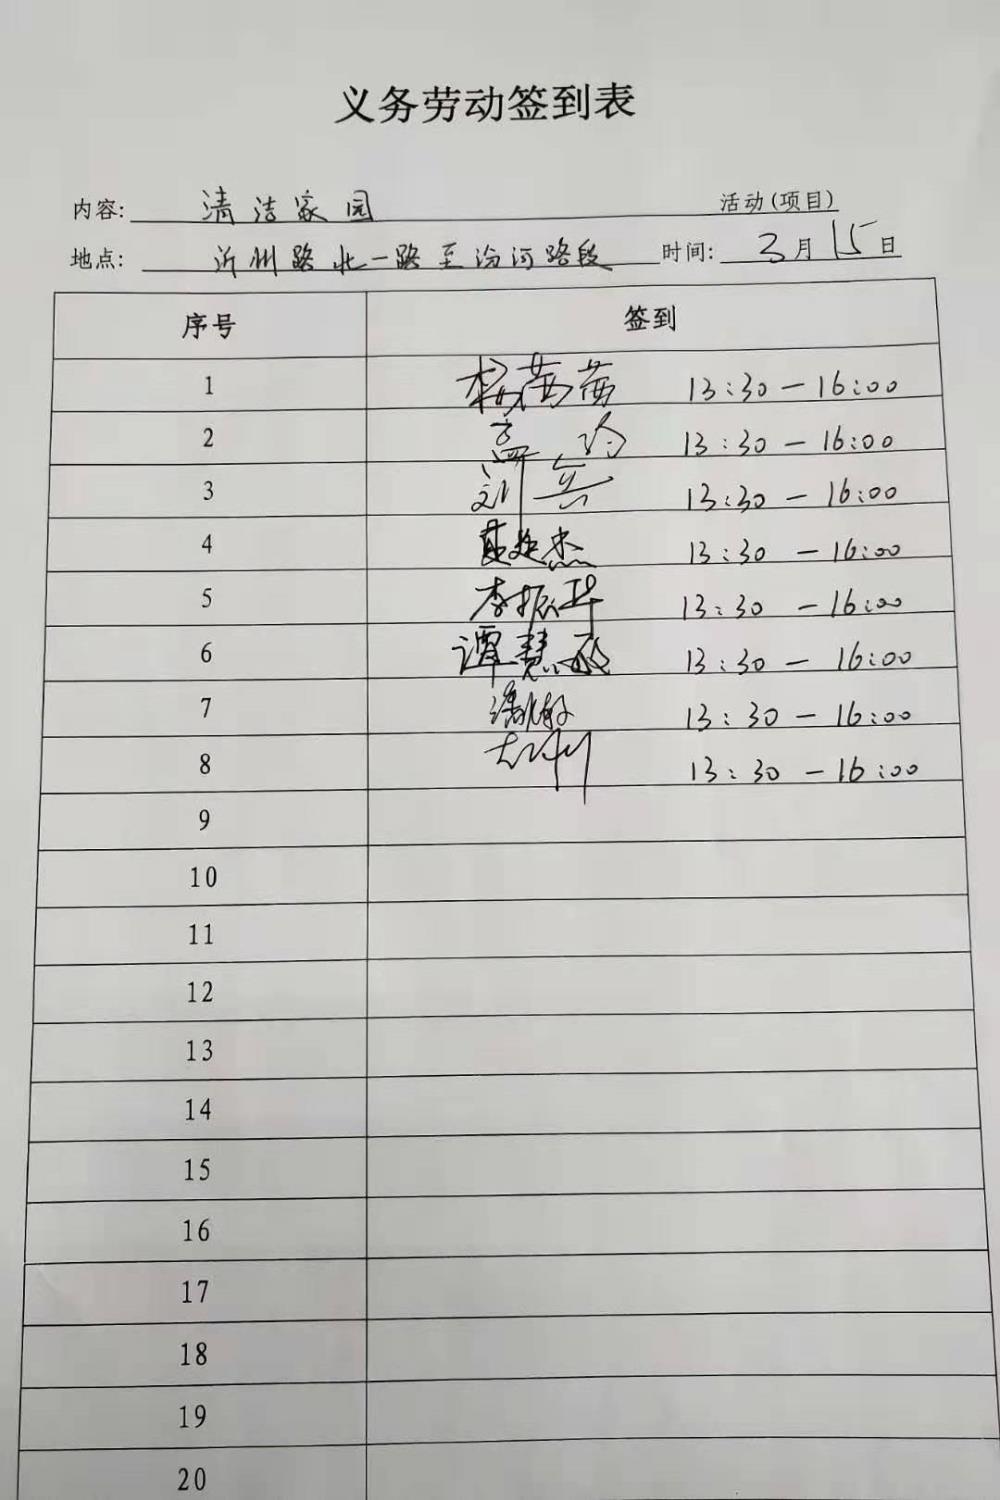 义务劳动签到表
内容: 清洁家园 活动(项目)
地点: 沂州路北一路至汾河路段 时间: 3月15日
序号 签到
1 杨茜茜 13:30-16:00
2 孟玲 13:30-16:00
3 刘兵 13:30-16:00
4 杰 13:30-16:00
5 李振华 13:30-16:00
6 谭慧敏 13:30-16:00
7 13:30-16:00
8 13:30-16:00
9
10
11
12
13
14
15
16
17
18
19
20